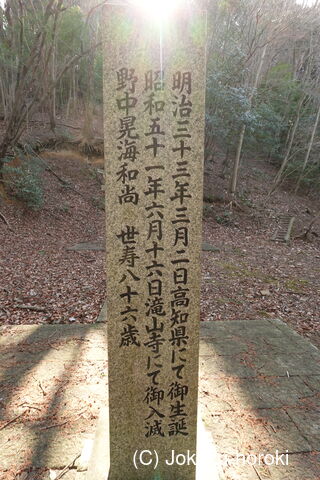 明治三十三年三月二日高知県にて御生誕
昭和五十一年六月十六日滝山寺にて御入滅
野中晃海和尚 世寿八十六歳